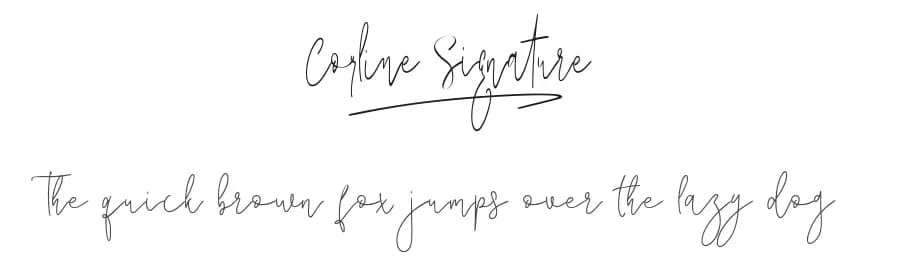 Corline Signature
The quick brown fox jumps over the lazy dog